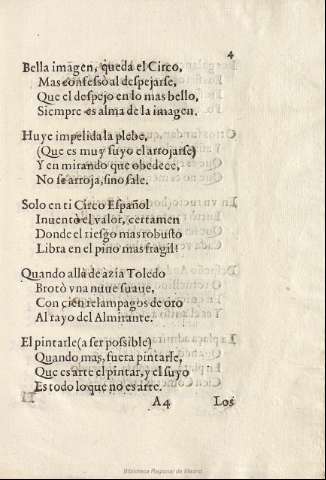 4
Bella imagen, queda el Circo,
Mas confessò al despejarse,
Que el despejo en lo mas bello,
Siempre es alma de la imagen.
Huye impelida la plebe,
(Que es muy suyo el arrojarse)
Y en mirando que obedece,
No se arroja, sino sale.
Solo en ti Circo Español
Inuentò el valor, certamen
Donde el riesgo mas robusto
Libra en el pino mas fragil!
Quando allà de azia Toledo
Brotò vna nuue suaue,
Con cien relampagos de oro
Al rayo del Almirante.
El pintarle (a ser possible)
Quando mas, fuera pintarle,
Que es arte el pintar, y el suyo
Es todo lo que no es arte.
A4 Los
Biblioteca Regional de Madrid